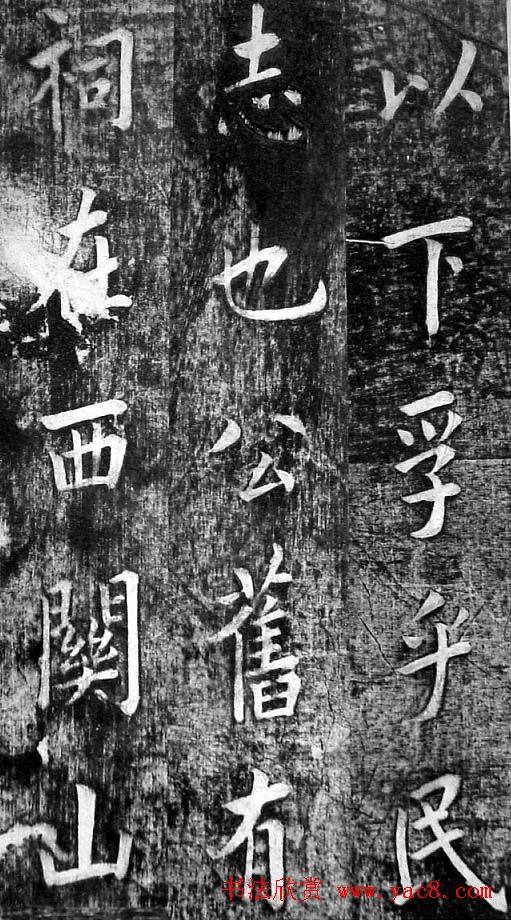 以下孚乎民
志也公舊有
祠在西關山
书法欣赏 www.yac8.com